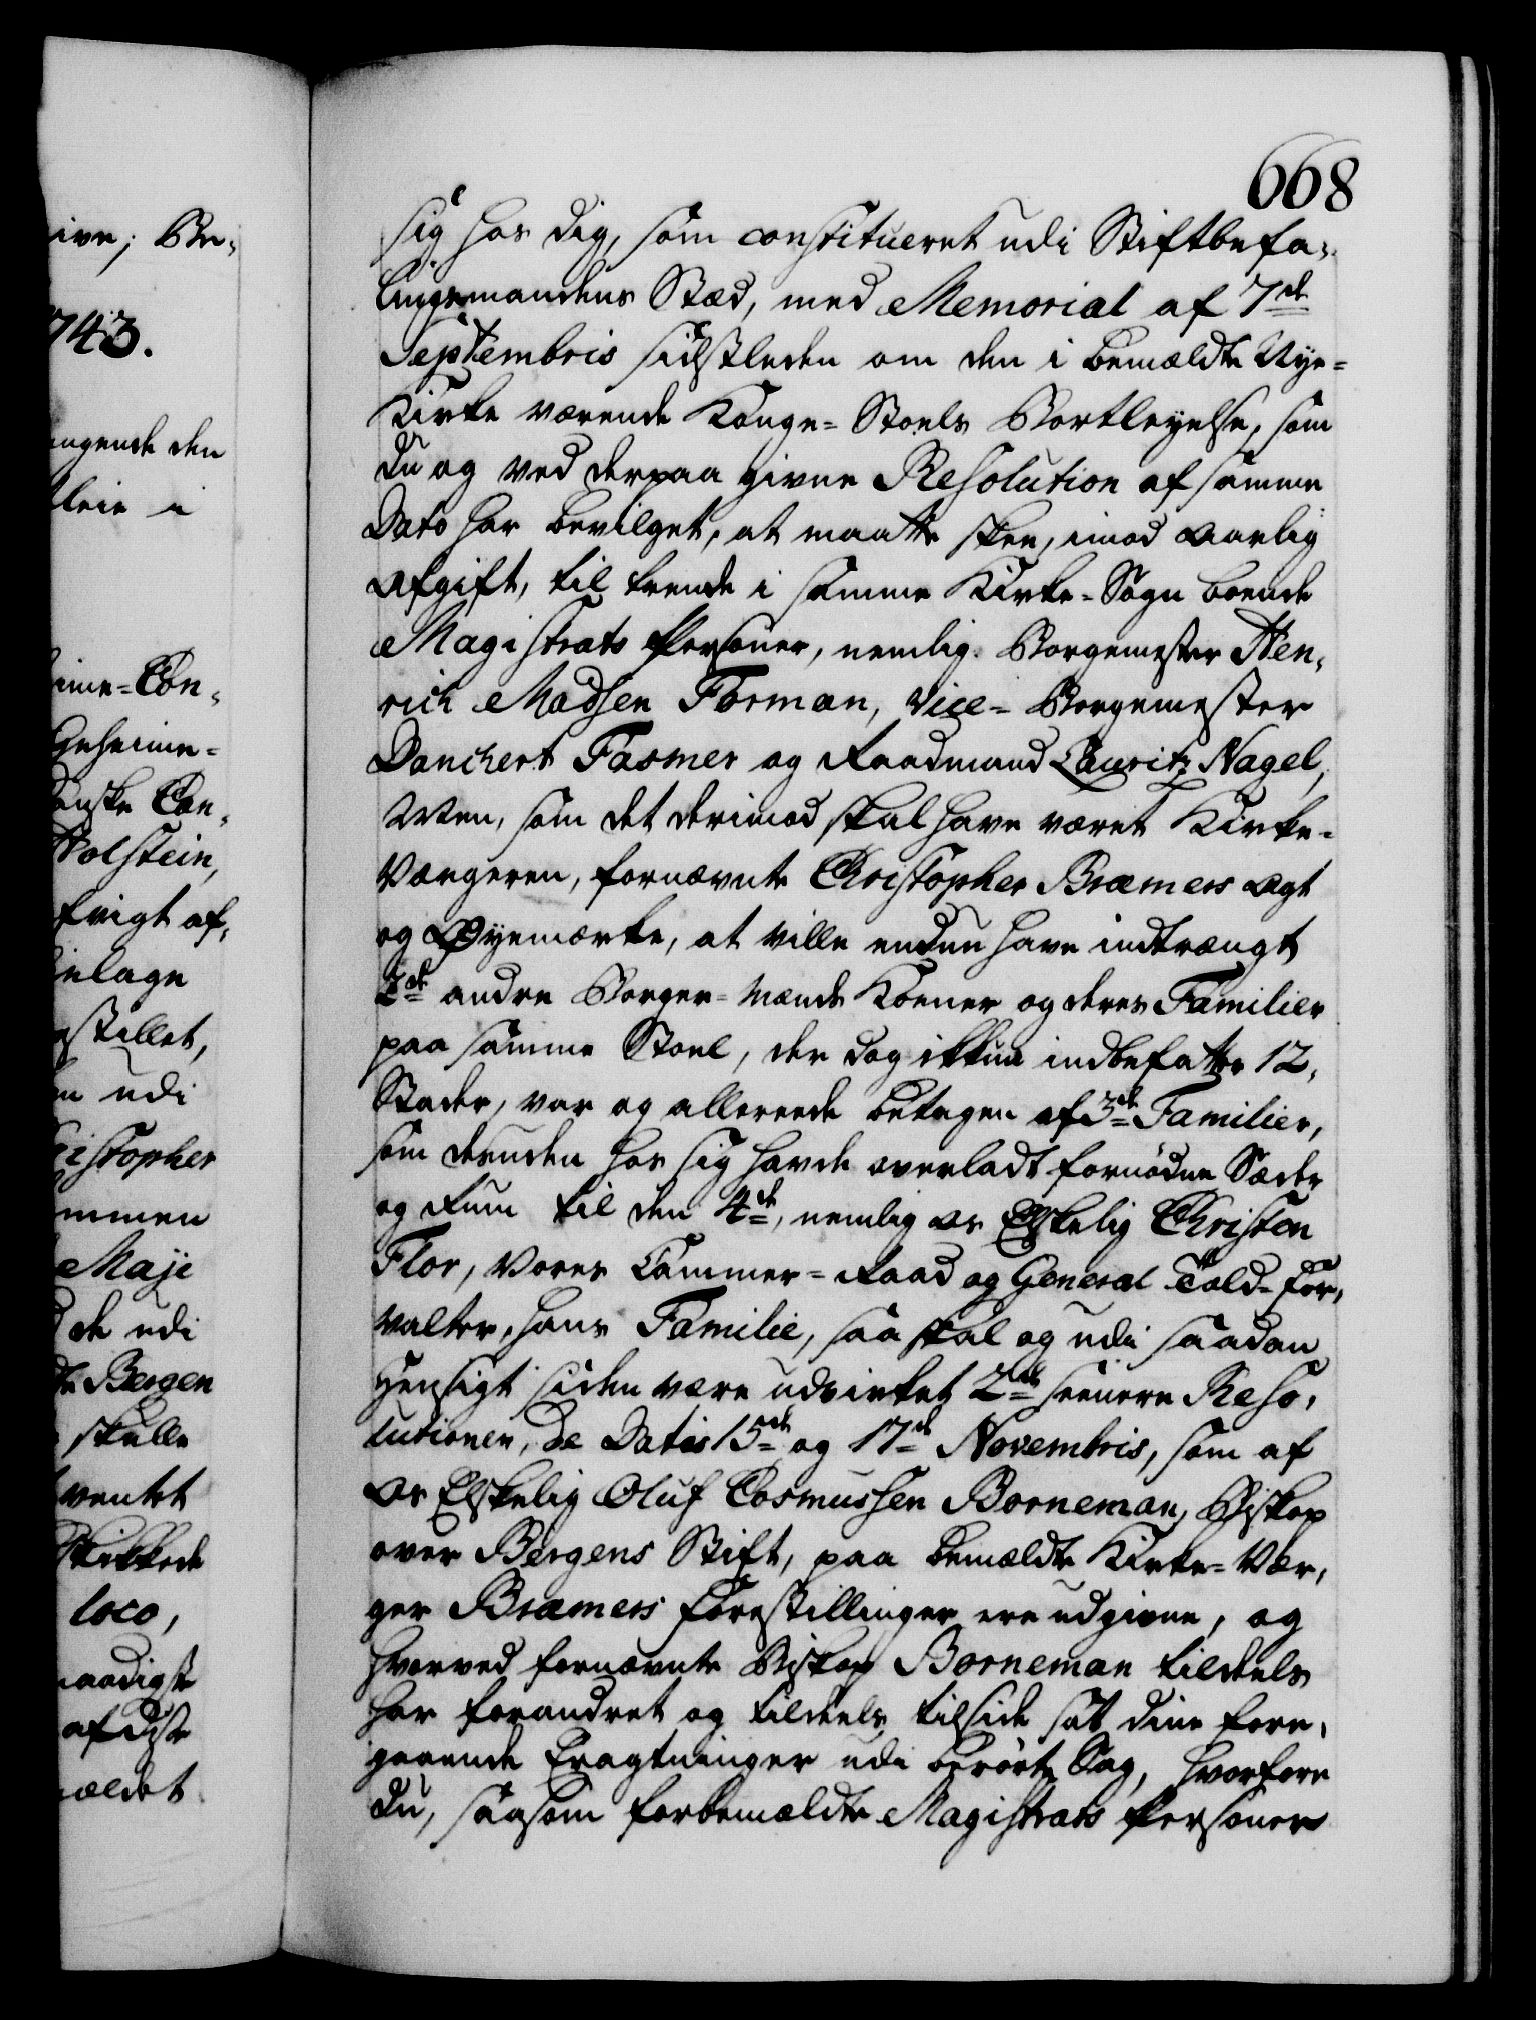 668
sig hos dig, som constitueret udi Stiftbefa-
lingsmandens Stæd, med Memorial af 7de
Septembris sidstleden om den i bemældte Nye-
Kirke værende Konge-Stoels Bortleyelse, som
du og ved derpaa given Resolution af samme
Dato har bevilget, at maatte skee, imod aarlig
Afgift, til trende i samme Kirke-Sogn boende
Magistrats Personer, nemlig. Borgemester Hen-
rich Madsen Forman, Vice-Borgemester
Danchert Fasmer og Raadmand Lauritz Nagel,
Men, som det derimod skal have været Kirke-
Værgeren, fornævnte Christopher Bræmers Agt
og Øyemærke, at ville endnu have indtrængt
2de andre Borger-Mænds Koener og deres Familier
paa samme Stoel, der dog ikkun indbefatter 12,
Stader, var og allereede betagen af 3de Familier,
som desuden hos sig havde overladt fornødne Sæder
og Rum til den 4de, nemlig Os Elskelig Christen
Flor, Vores Cammer-Raad og General Told-For-
valter, hans Familie, saa skal og udi saadan
Hensigt siden være udvirket 2de seenere Reso-
lutioner, De Datis 15de og 17de Novembris, som af
Os Elskelig Oluf Cosmussen Borneman, Biskop
over Bergens Stift, paa bemældte Kirke-Vær-
ger Bræmers Forestillinger ere udgivne, og
hvorved fornævnte Biskop Borneman tildeels
har forandret og tildeels tilside sat dine fore-
gaaende Eragtninger udi berørte Sag, hvorfore
du, saasom forbemældte Magistrats Personer
ive; Be-
743.
ngende den
leie i
ime-Con-
Geheime-
anske Can-
Holstein,
frigt af,
ielage
stillet,
n udi
ristopher
mmen
Maji
de udi
Bergen
skulle
ventet
skikkede
loco,
naadigst
afdøde
mældet